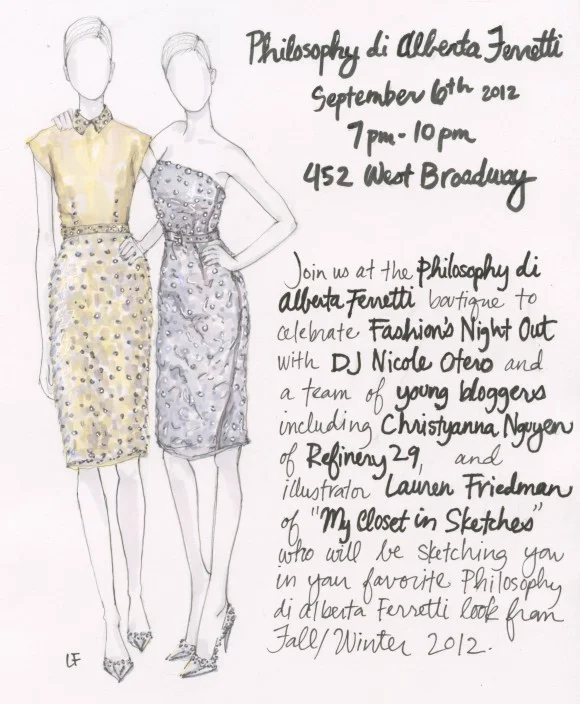 Philosophy di Alberta Ferretti
September 6th 2012
7pm-10pm
452 West Broadway
Join us at the Philosophy di
Alberta Ferretti boutique to
celebrate Fashion's Night Out
with DJ Nicole Otero and
a team of young bloggers
including Christyanna Nguyen
of Refinery 29, and
illustrator Lauren Friedman
of "My Closet in Sketches"
who will be sketching you
in your favorite Philosophy
di Alberta Ferretti look from
Fall/Winter 2012.
LF